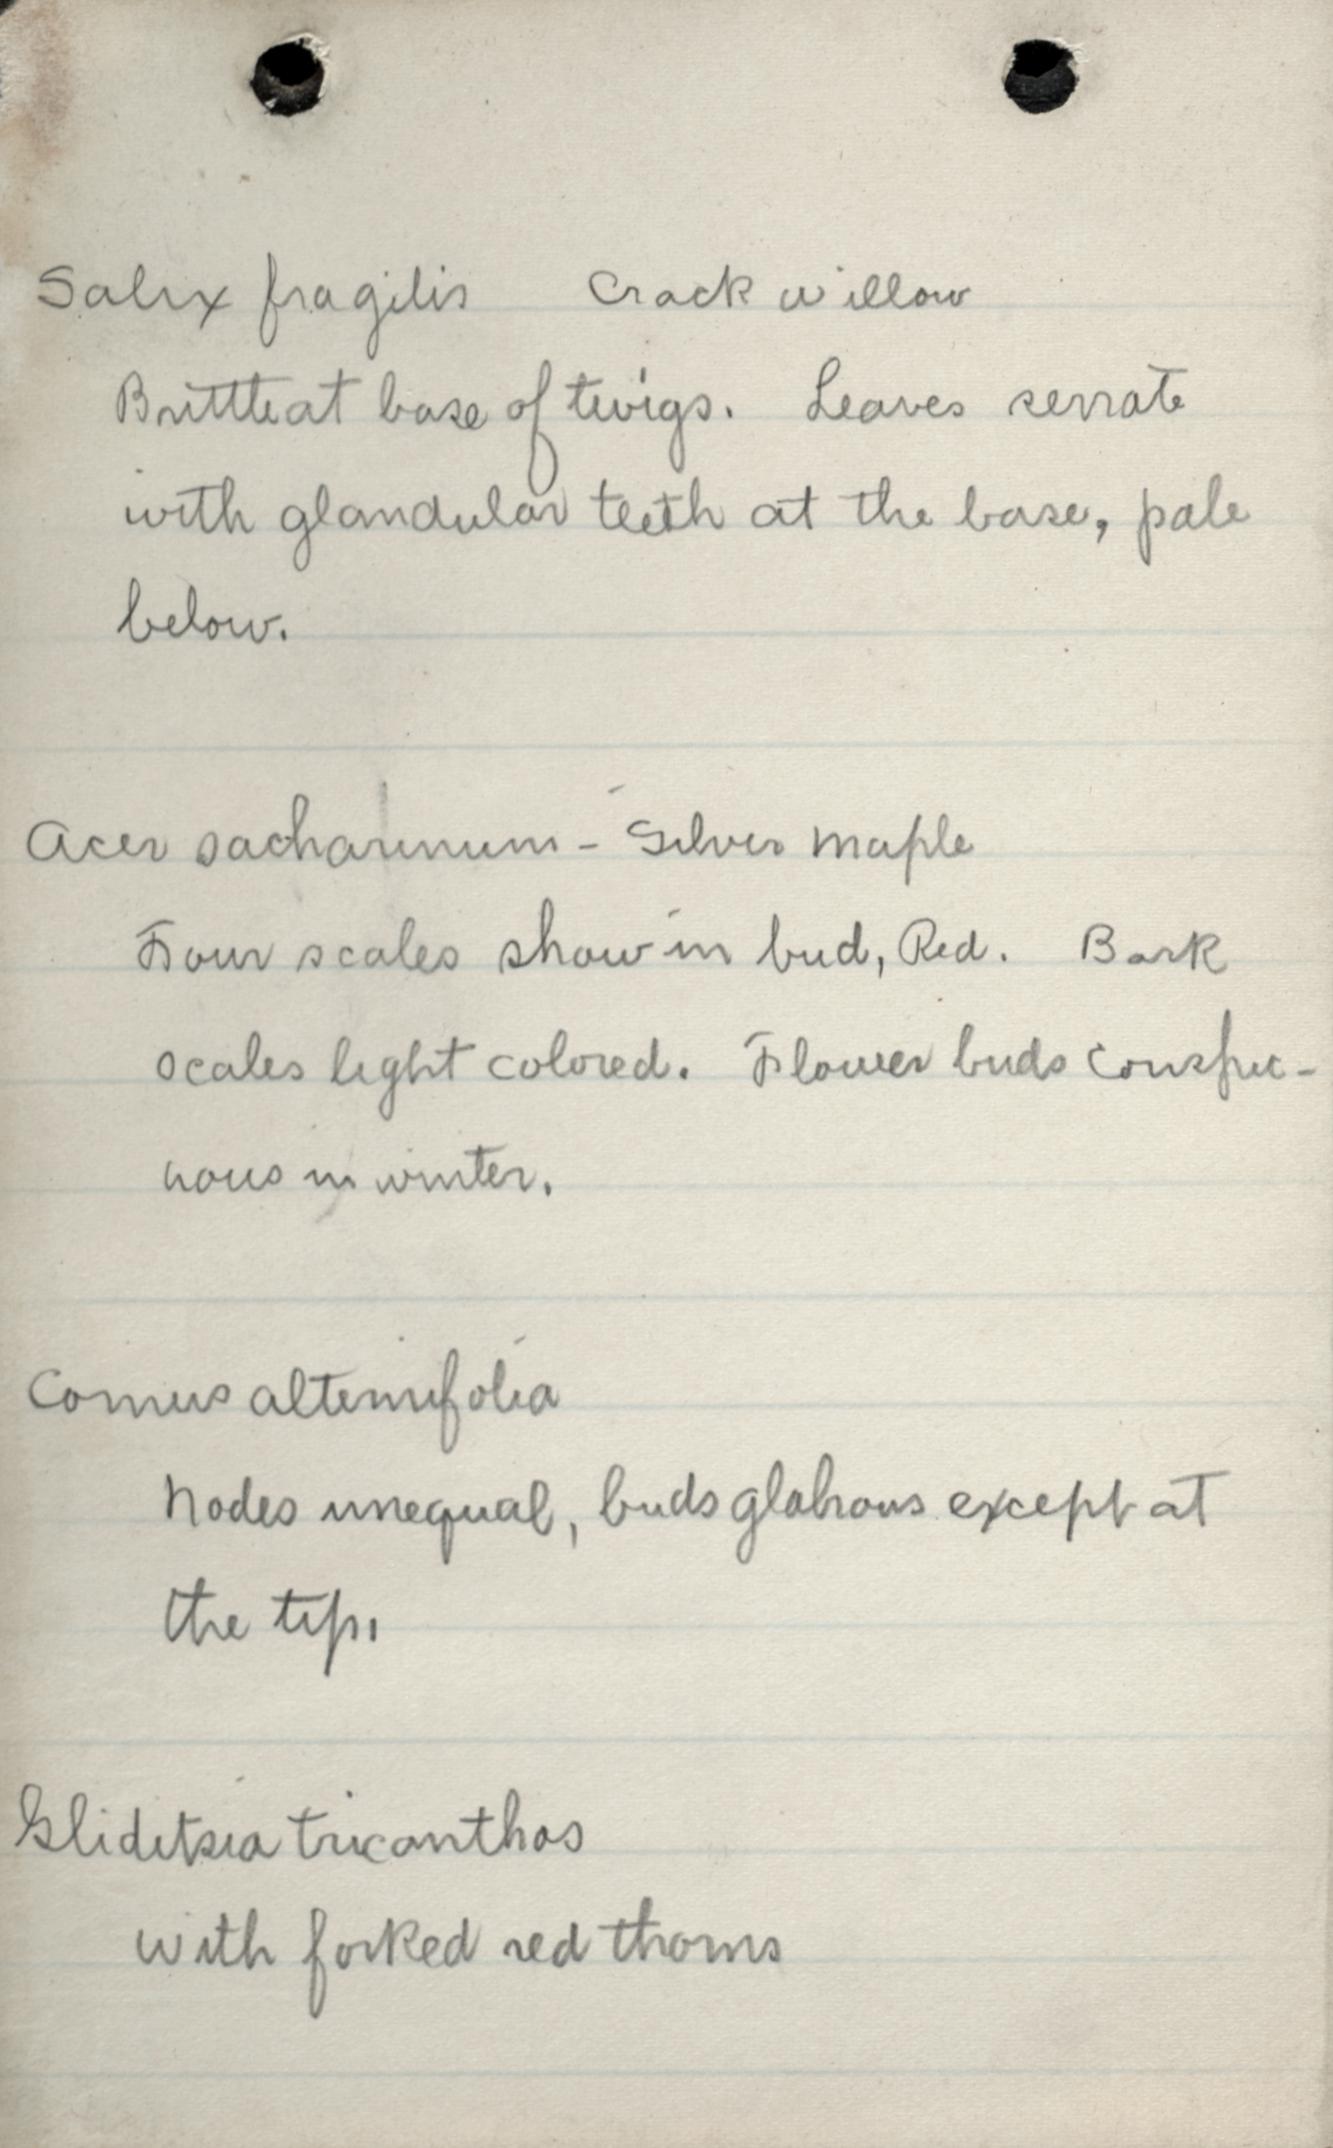 Salix fragilis Crack willow
Brittle at base of twigs. Leaves serrate
with glandular teeth at the base, pale
below.
Acer sacharinum - Silver maple
Four scales show in bud, Red. Bark
scales light colored. Flower buds conspic-
uous in winter.
Cornus alternifolia
Nodes unequal, buds glabrous except at
the tip.
Gliditsia tricanthos
with forked red thorns